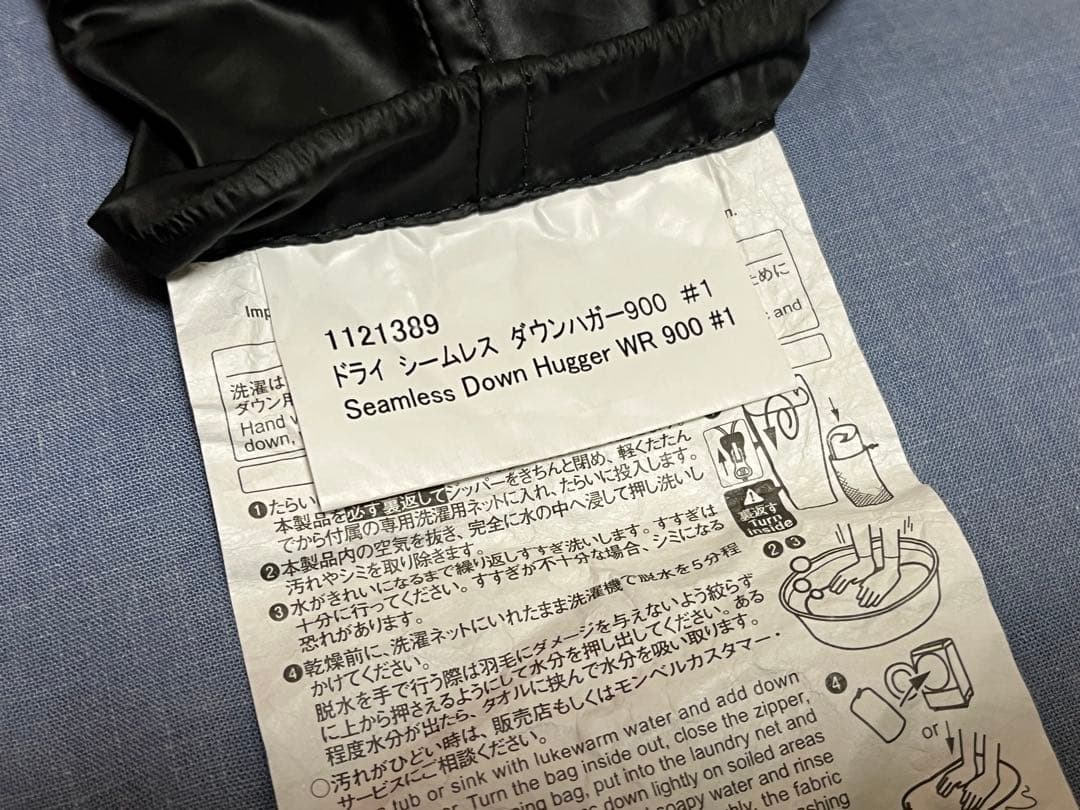 1121389
ドライ シームレス ダウンハガー900 #1
Seamless Down Hugger WR 900 #1
n.
Imp
ために
and
洗濯は
ダウン用
Hand
down,
❶たらい
本製品を必ず裏返してジッパーをきちんと閉め、軽くたたん
でから付属の専用洗濯用ネットに入れ、たらいに投入します。
❷本製品内の空気を抜き、完全に水の中へ浸して押し洗いし
汚れやシミを取り除きます。
❸水がきれいになるまで繰り返しすすぎ洗いします。すすぎは
十分に行ってください。すすぎが不十分な場合、シミになる
恐れがあります。
❹乾燥前に、洗濯ネットにいれたまま洗濯機で脱水を5分程
かけてください。
脱水を手で行う際は羽毛にダメージを与えないよう絞らず
に上から押さえるようにして水分を押し出してください。ある
程度水分が出たら、タオルに挟んで水分を吸い取ります。
○汚れがひどい時は、販売店もしくはモンベルカスタマー・
サービスにご相談ください。
tub or sink with lukewarm water and add down
Turn the bag inside out, close the zipper,
ing bag, put into the laundry net and
down lightly on soiled areas
soapy water and rinse
the fabric
裏返す
Turn
Inside
❷ ❸
❹
or